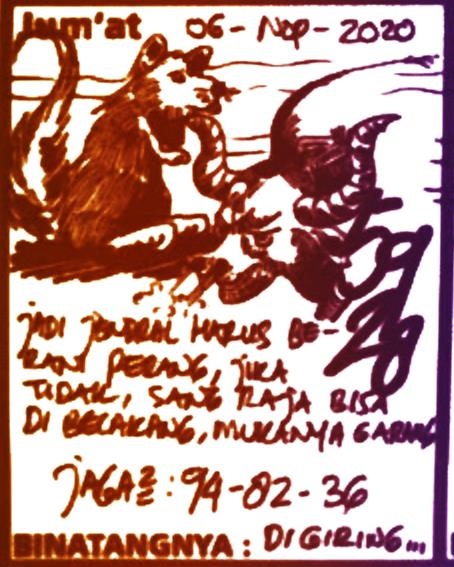 Jum'at 06 - Nop - 2020
59
28
JADI JENDRAL HARUS BE-
RANI PERANG, JIKA
TIDAK, SANG RAJA BISA
DI BELAKANG, MUKANYA GARANG
JAGA2 = : 94 - 02 - 36
BINATANGNYA : DI GIRING...